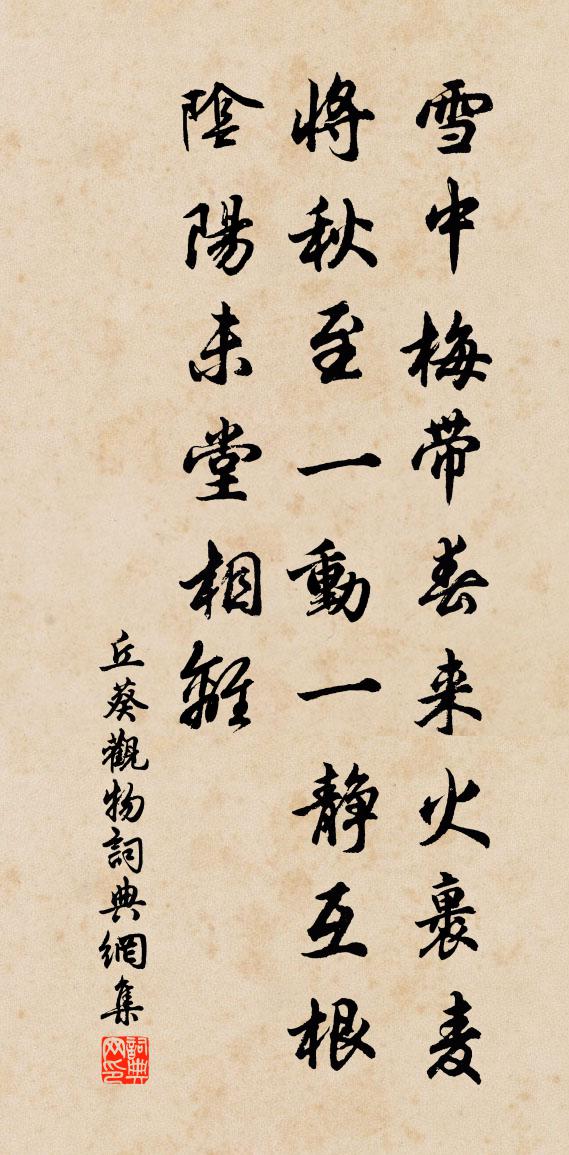 雪中梅带春来火裹麦
將秋至一動一静互根
陰陽未堂相離
丘葵觀物詞典網集
詞典网印